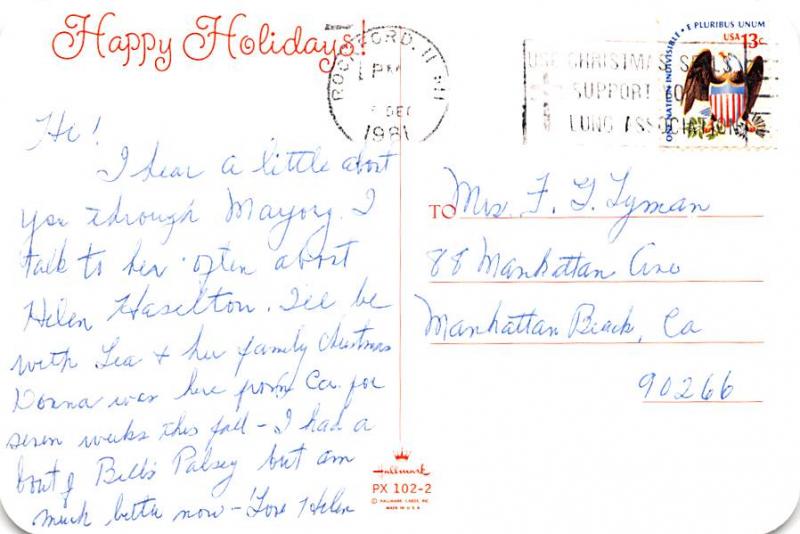 Happy Holidays!
ROCKFORD, IL
PM
DEC
1981
USE CHRISTMAS SEALS
SUPPORT YO
LUNG ASSOCIATION
ONE NATION INDIVISIBLE • E PLURIBUS UNUM
USA 13c
Hi!
I hear a little about
you through Marjory. I
talk to her often about
Helen Haselton. I'll be
with Lea + her family Christmas
Donna was here from Ca. for
seven weeks this fall - I had a
bout of Bells Palsey but am
much better now - Love Helen
TO Mrs. F. G. Lyman
88 Manhattan Ave
Manhattan Beach, Ca
90266
Hallmark
PX 102-2
© HALLMARK CARDS, INC.
MADE IN U.S.A.